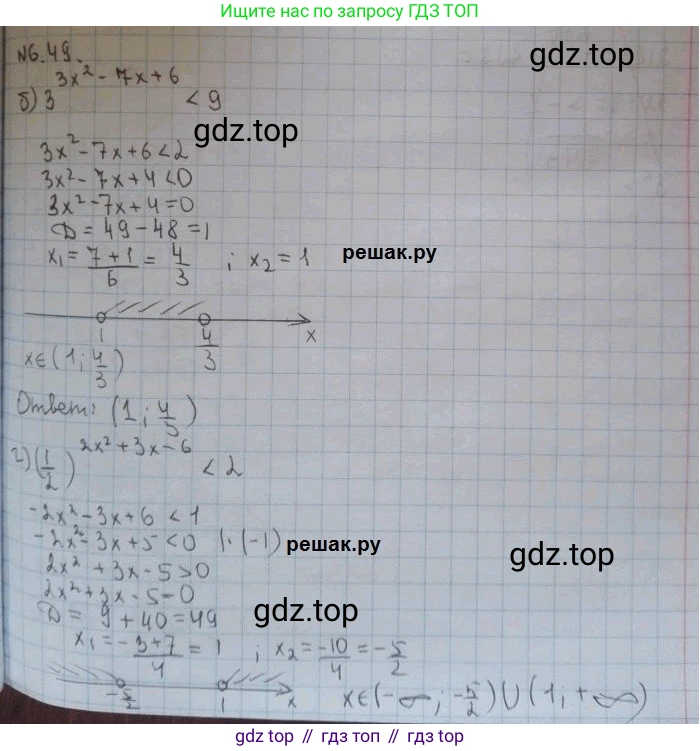 Ищите нас по запросу ГДЗ ТОП
N6.49.
gdz.top
б) 3^(3x² - 7x + 6) < 9
gdz.top
3x² - 7x + 6 < 2
3x² - 7x + 4 < 0
3x² - 7x + 4 = 0
D = 49 - 48 = 1
x₁ = (7 + 1)/6 = 4/3 ; x₂ = 1
решак.ру
1 4/3 x
x ∈ (1; 4/3)
Ответ: (1; 4/3)
gdz.top
г) (1/2)^(2x² + 3x - 6) < 2
-2x² - 3x + 6 < 1
-2x² - 3x + 5 < 0 | · (-1)
решак.ру
gdz.top
2x² + 3x - 5 > 0
2x² + 3x - 5 = 0
D = 9 + 40 = 49
gdz.top
x₁ = (-3 + 7)/4 = 1 ; x₂ = -10/4 = -5/2
-5/2 1 x
x ∈ (-∞; -5/2) ∪ (1; +∞)
gdz.top // гдз топ // gdz.top // гдз топ // gdz.top